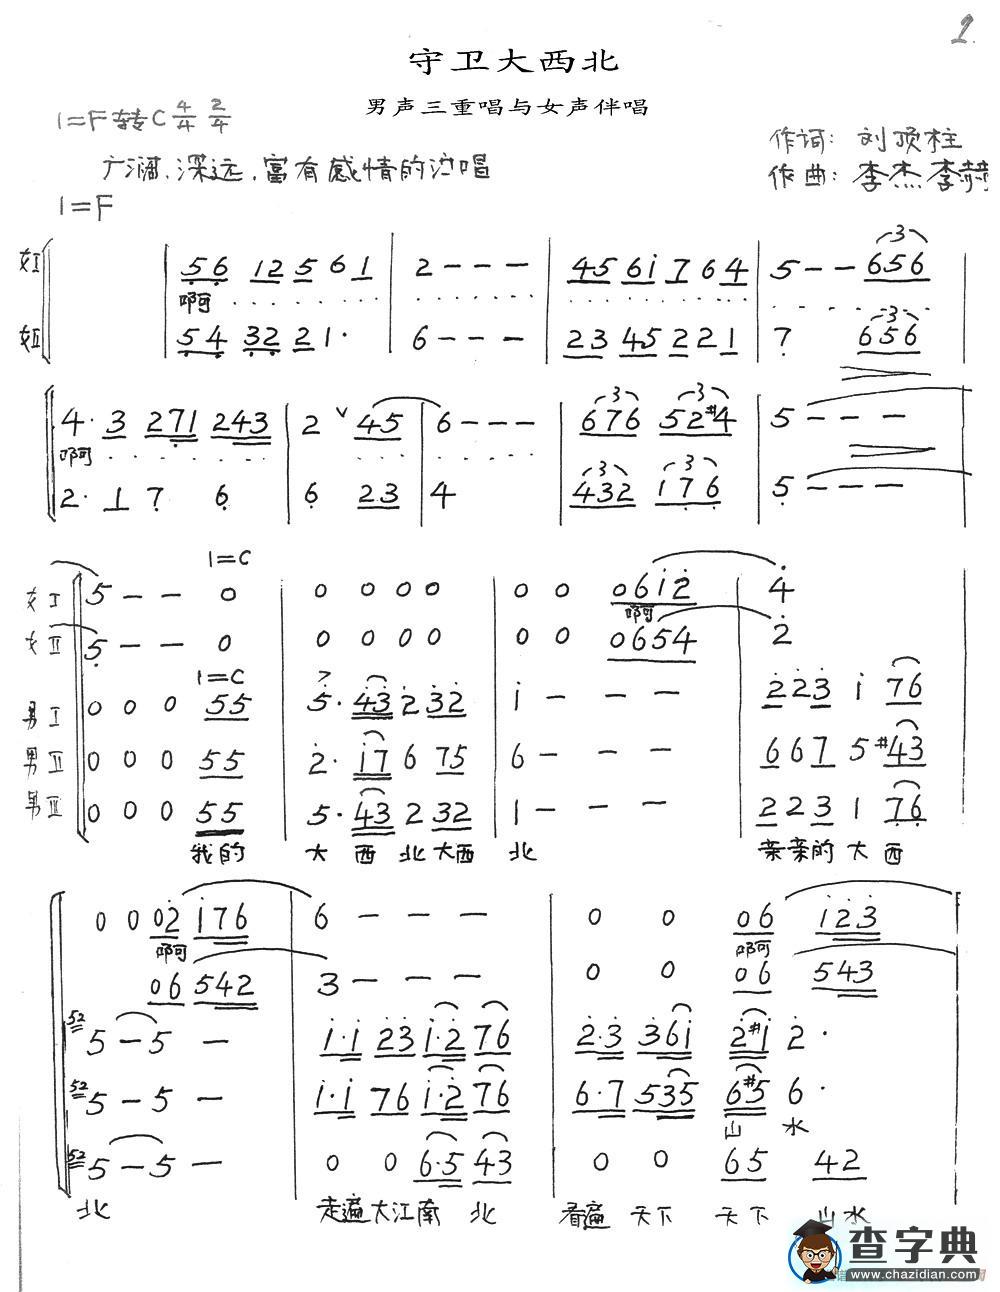 2.
守卫大西北
男声三重唱与女声伴唱
1=F转C 4/4 2/4
作词: 刘顶柱
广阔、深远、富有感情的演唱
作曲: 李杰 李赫
1=F
女I 56 12 5 6 1 | 2 - - - | 45 6i 7 6 4 | 5 - - 656
啊
女II 54 32 21· | 6 - - - | 23 45 2 2 1 | 7 656
4· 3 271 243 | 2 ∨ 45 | 6 - - - | 676 52#4 | 5 - - -
啊
2· 1 7 6 | 6 23 | 4 | 432 176 | 5 - - -
1=C
女I 5 - - 0 | 0 0 0 0 | 0 0 06i2 | 4
啊
女II 5 - - 0 | 0 0 0 0 | 0 0 0654 | 2
1=C
男I 0 0 0 55 | 5· 43 2 32 | i - - - | 2 2 3 i 76
男II 0 0 0 55 | 2· i7 6 75 | 6 - - - | 6 6 7 5 #43
男III 0 0 0 55 | 5· 43 2 32 | 1 - - - | 2 2 3 1 76
我的 大 西 北大西 北 亲亲的 大 西
0 0 02 i76 | 6 - - - | 0 0 06 i23
啊 啊
06 542 | 3 - - - | 0 0 06 543
52 5 - 5 - | i·i 23 i·2 76 | 2·3 36i 2#i 2·
52 5 - 5 - | i·i 76 i·2 76 | 6·7 535 6#5 6·
山 水
52 5 - 5 - | 0 0 6·5 43 | 0 0 65 42
北 走遍大江南 北 看遍 天下 天下 山水
查字典
www.chazidian.com